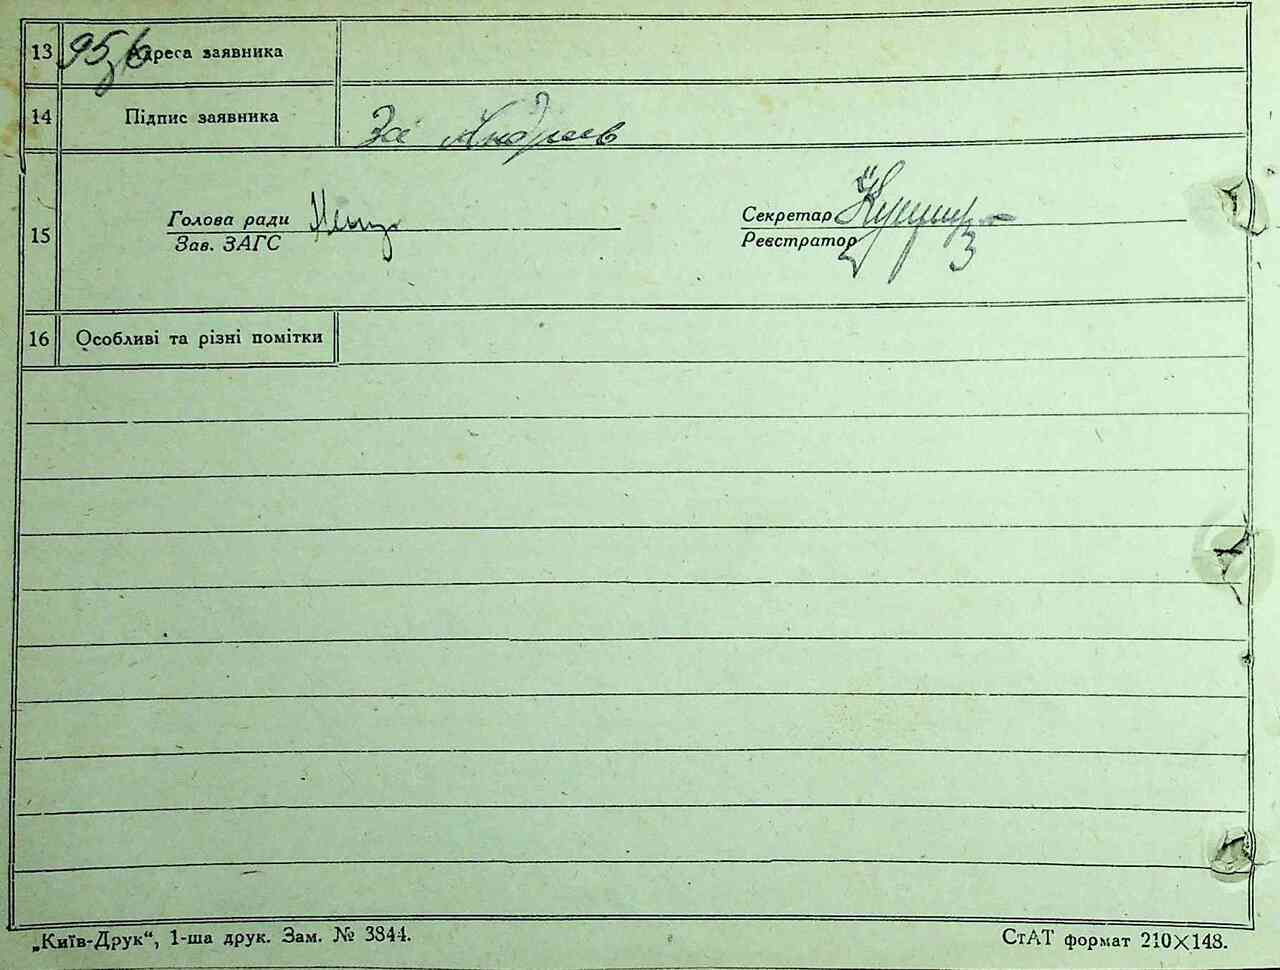 13 95зб Адреса заявника
14 Підпис заявника За Андреев
15 Голова ради Секретар
Зав. ЗАГС Реєстратор
16 Особливі та різні помітки
„Київ-Друк“, 1-ша друк. Зам. № 3844. СтАТ формат 210×148.